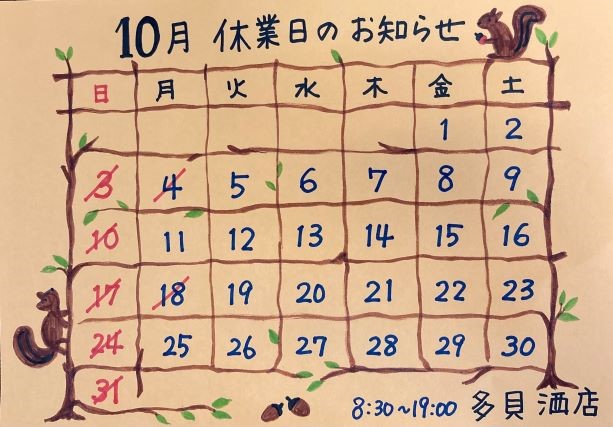 10月 休業日のお知らせ
日 月 火 水 木 金 土
1 2
3 4 5 6 7 8 9
10 11 12 13 14 15 16
17 18 19 20 21 22 23
24 25 26 27 28 29 30
31
8:30~19:00 多貝酒店